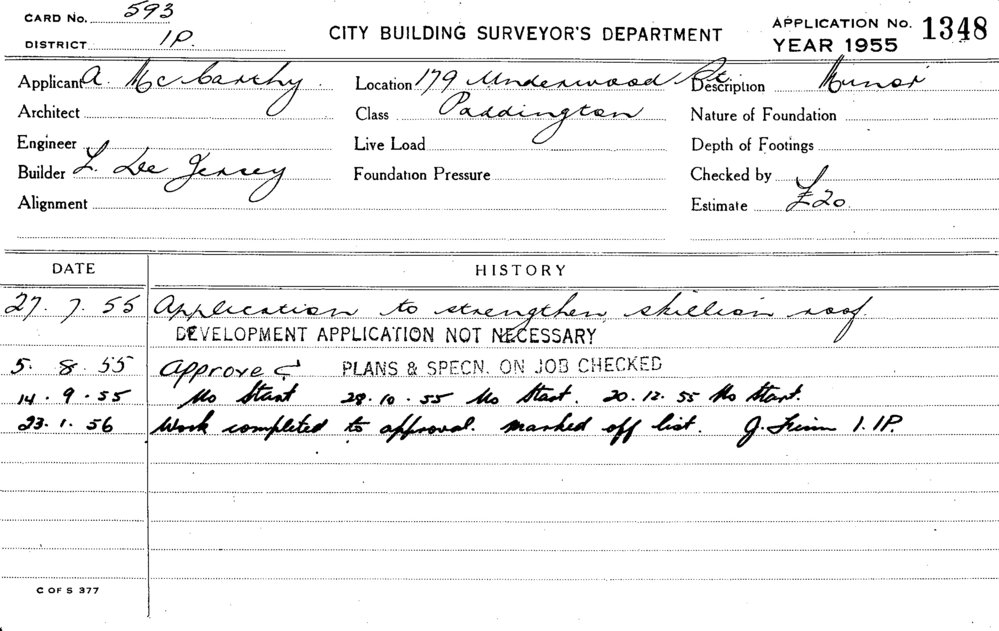 CARD No. 593
DISTRICT 1P.
CITY BUILDING SURVEYOR'S DEPARTMENT
APPLICATION No. 1348
YEAR 1955
Applicant A. McCarthy Location 179 Underwood St. Description Minor
Architect Class Paddington Nature of Foundation
Engineer Live Load Depth of Footings
Builder L. De Jersey Foundation Pressure Checked by
Alignment Estimate £20.
DATE HISTORY
27. 7. 55 Application to strengthen skillion roof
DEVELOPMENT APPLICATION NOT NECESSARY
5. 8. 55 Approved PLANS & SPECN. ON JOB CHECKED
14. 9. 55 No Start 28. 10. 55 No Start. 20. 12. 55 No Start.
23. 1. 56 Work completed to approval. marked off list. J. 1. 1P.
C OF S 377